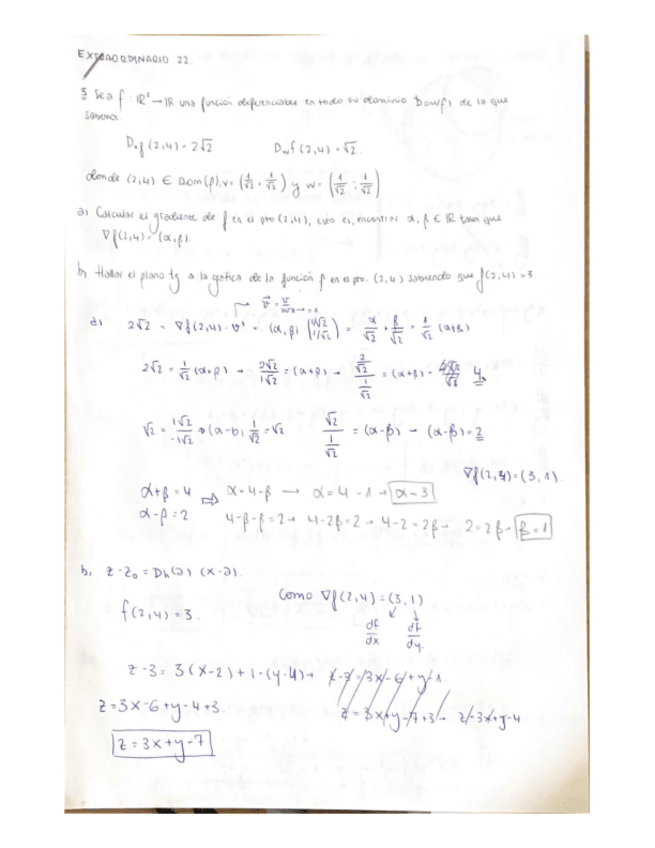 EXTRAORDINARIO 22.
3 Sea f: ℝ² → ℝ una función diferenciable en todo su dominio Dom(f) de la que
sabemos
Dᵥf(2,4) = 2√2    D_w f(2,4) = √2.
donde (2,4) ∈ Dom(f), v = (1/√2, 1/√2) y w = (1/√2, -1/√2)
a) Calcular el gradiente de f en el pto (2,4), esto es, encontrar α, β ∈ ℝ tales que
∇f(2,4) = (α, β).
b) Hallar el plano tg a la gráfica de la función f en el pto. (2,4) sabiendo que f(2,4) = 3
a) 2√2 = ∇f(2,4) · v = (α, β) (1/√2 1/√2) = α/√2 + β/√2 = 1/√2 (α+β)
2√2 = 1/√2 (α+β) → 2√2/1/√2 = (α+β) → = (α+β) = 4
√2 = 1/√2 -1/√2 → (α-β) 1/√2 = √2    √2/(1/√2) = (α-β) → (α-β) = 2
∇f(2,4) = (3,1).
α+β = 4 ⇒ α = 4-β → α = 4-1 → α = 3
α-β = 2    4-β-β = 2 → 4-2β = 2 → 4-2 = 2β → 2 = 2β → β = 1
b, z-z₀ = Dh(a) (x-a).
Como ∇f(2,4) = (3,1)
f(2,4) = 3.
df/dx    df/dy
z-3 = 3(x-2)+1·(y-4) →
z = 3x-6+y-4+3.
z = 3x+y-7+3 → z = 3x+y-4
z = 3x+y-7